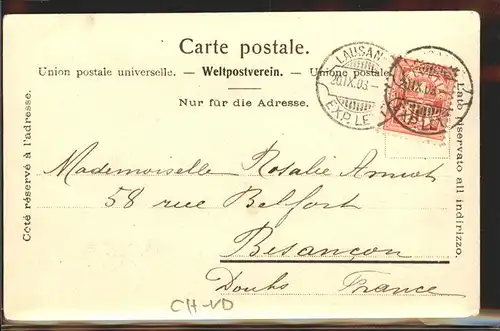 Carte postale.
Union postale universelle. — Weltpostverein. — Unione postale
Nur für die Adresse.
Côté réservé à l'adresse.
Lato riservato all indirizzo.
LAUSAN
20.IX.03
EXP. LE
IX.03
EXP. LE
Mademoiselle Rosalie Amiot
58 rue Belfort
Besançon
Doubs France
CH-VD